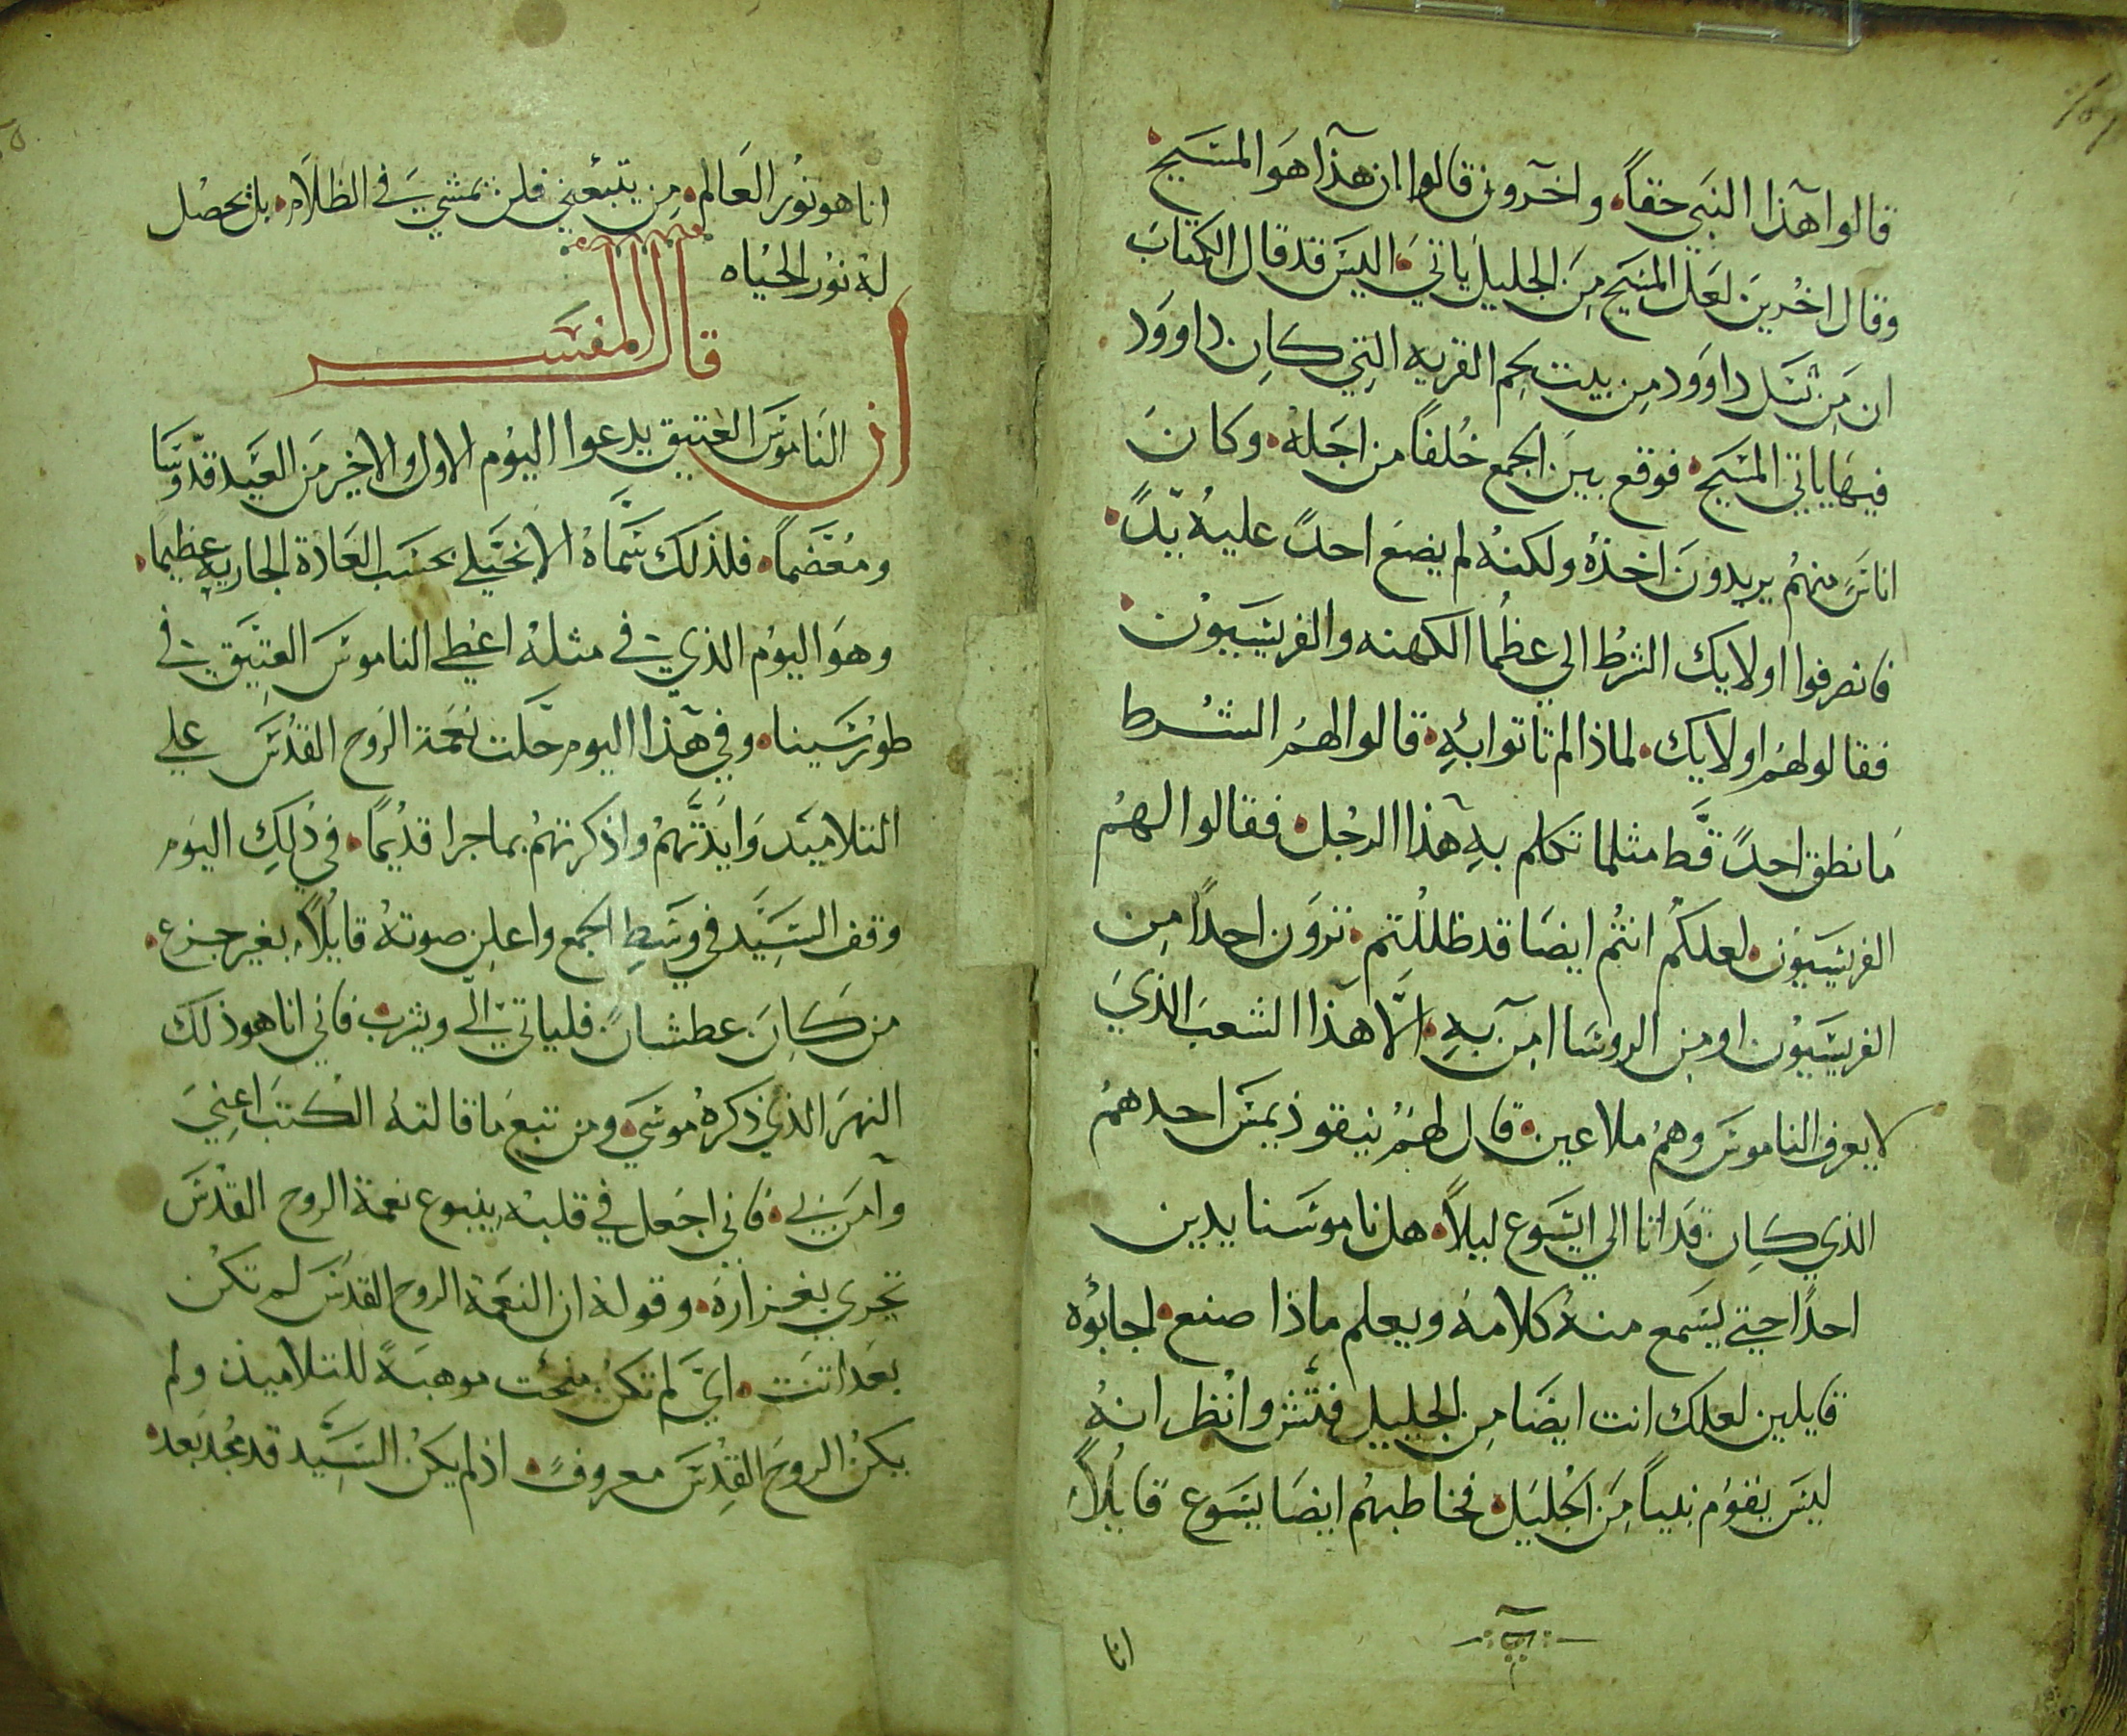 قالوا هذا النبي حقاً. واخرون قالوا ان هذا هو المسيح.
وقال اخرين لعل المسيح من الجليل ياتي. اليس قد قال الكتاب
ان من نسل داوود من بيت لحم القريه التي كان داوود
فيها ياتي المسيح. فوقع بين الجمع خلفاً من اجله. وكان
اناس منهم يريدون اخذه ولكنه لم يضع احدً عليه يدً.
فانصرفوا اولايك الشرط الي عظما الكهنه والفريسيون.
فقالو لهم اولايك. لماذا لم تاتوا به. قالوا لهم الشرط
ما نطق احدً قط مثلما تكلم به هذا الرجل. فقالوا لهم
الفريسيون. لعلكم انتم ايضا قد ظللتم. ترون احداً من
الفريسيون او من الروسا امن به. الّا هذا الشعب الذي
لا يعرف الناموس وهم ملاعين. قال لهم نيقوذيمس احدهم
الذي كان قد اتا الي ايسوع ليلاً. هل ناموسنا يدين
احداً حتي يسمع منه كلامه ويعلم ماذا صنع. اجابوه
قايلين لعلك انت ايضا من الجليل فتش وانظر انه
ليس يقوم نبياً من الجليل. فخاطبهم ايضا يسوع قايلاً
انا
انا هو نور العالم. من يتبعني فلن يمشي في الظلام. بل تحصل
له نور الحياه
قال المفسر
ان الناموس العتيق يدعوا اليوم الاول والاخير من العيد قدوسا
ومعضماً. فلذلك سماه الانجيلي بحسب العادة الجاريه عظيما.
وهو اليوم الذي في مثله اعطي الناموس العتيق في
طور سينا. وفي هذا اليوم حلت نعمة الروح القدس علي
التلاميد وايدتهم واذكرتهم بما جرا قديماً. في ذلك اليوم
وقف السيد في وسط الجمع واعلن صوته قايلاً. بغير جزع.
من كان عطشانً فلياتي الّي ويشرب فاني انا هو ذلك
النهر الذي ذكره موسي. ومن تبع ما قالته الكتب اعني
وآمن بي. فاني اجعل في قلبه ينبوع نعمة الروح القدس
تجري بغزارة. وقوله ان النعمة الروح القدس لم تكن
بعد اتت. اي لم تكن منحت موهبةً للتلاميذ. ولم
يكن الروح القدس معروفً. اذ لم يكن السيد قد مجد بعد.